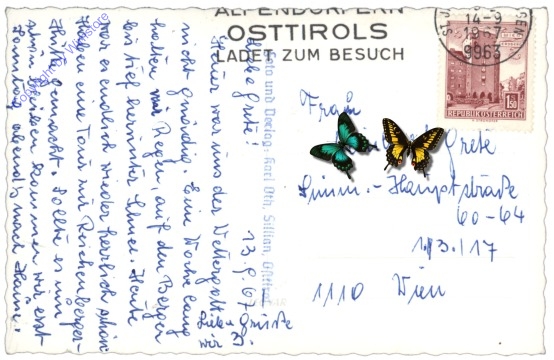 ALPENDÖRFERN
OSTTIROLS
LADET ZUM BESUCH
14-9
1967
9963
150
REPUBLIK ÖSTERREICH
Liebe Grete!
13.9.67
Heuer war uns der Wettergott
nicht gnädig. Eine Woche lang
hatten wir Regen, auf den Bergen
bis tief herunter Schnee. Heute
war es endlich wieder herrlich schön
Haben eine Tour mit Reichenberger-
Hütte gemacht. Sollte es
schön bleiben kommen wir erst
Sonntag abends nach Hause.
Liebe Grüsse
wir
Foto und Verlag: Karl Oth, Sillian, Osttirol
Frau
Grete
Simm.-Hauptstraße
60-64
1/3./17
1110 Wien